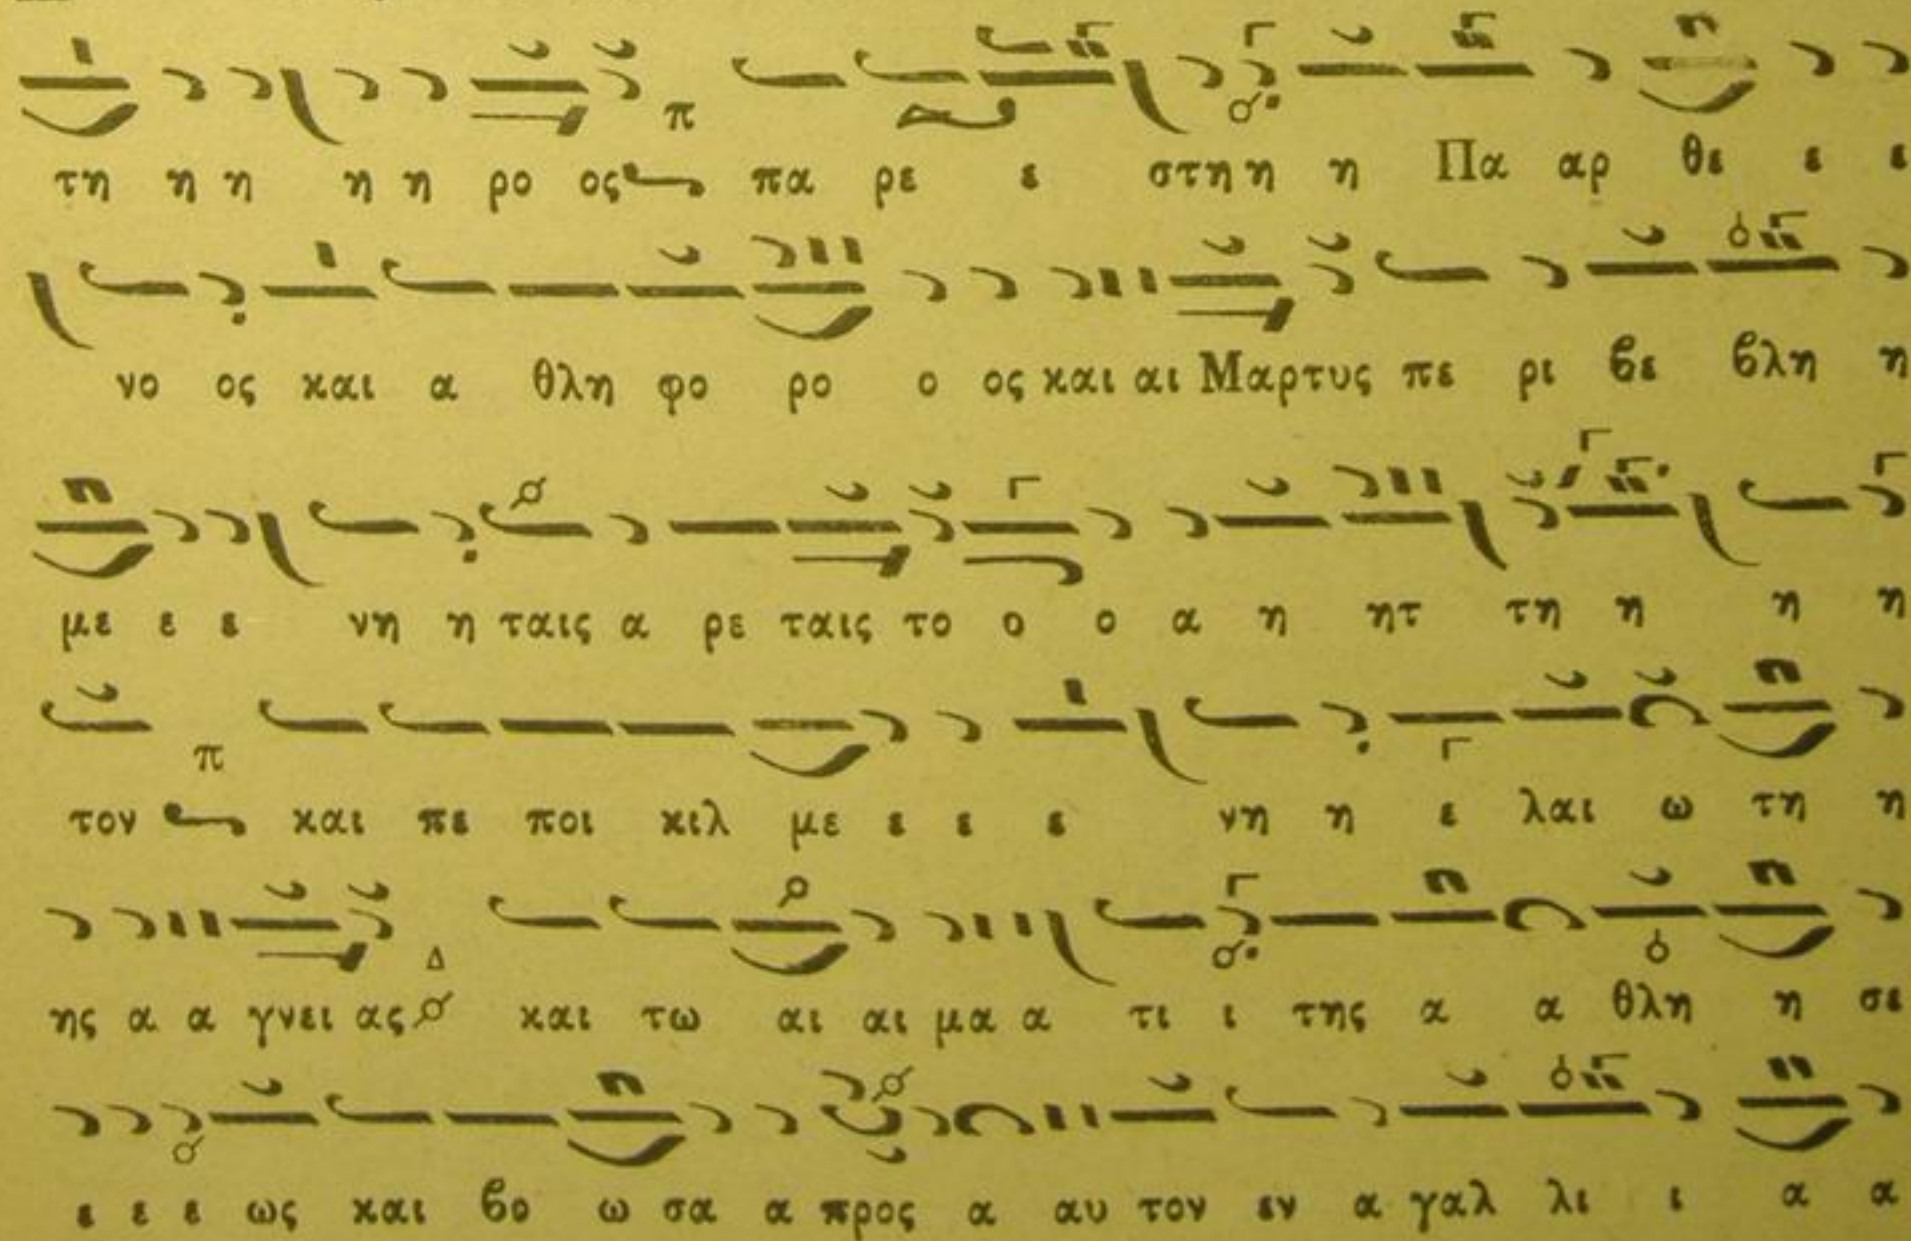 π
τη η η η η ρο ος πα ρε ε στη η η Πα αρ θε ε ε
νο ος και α θλη φο ρο ο ος και αι Μαρτυς πε ρι βε βλη η
με ε ε νη η ταις α ρε ταις το ο ο α η ητ τη η η η
π
τον και πε ποι κιλ με ε ε ε νη η ε λαι ω τη η
Δ
ης α α γνει ας και τω αι αι μα α τι ι της α α θλη η σε
ε ε ε ως και βο ω σα α προς α αυ τον εν α γαλ λι ι α α